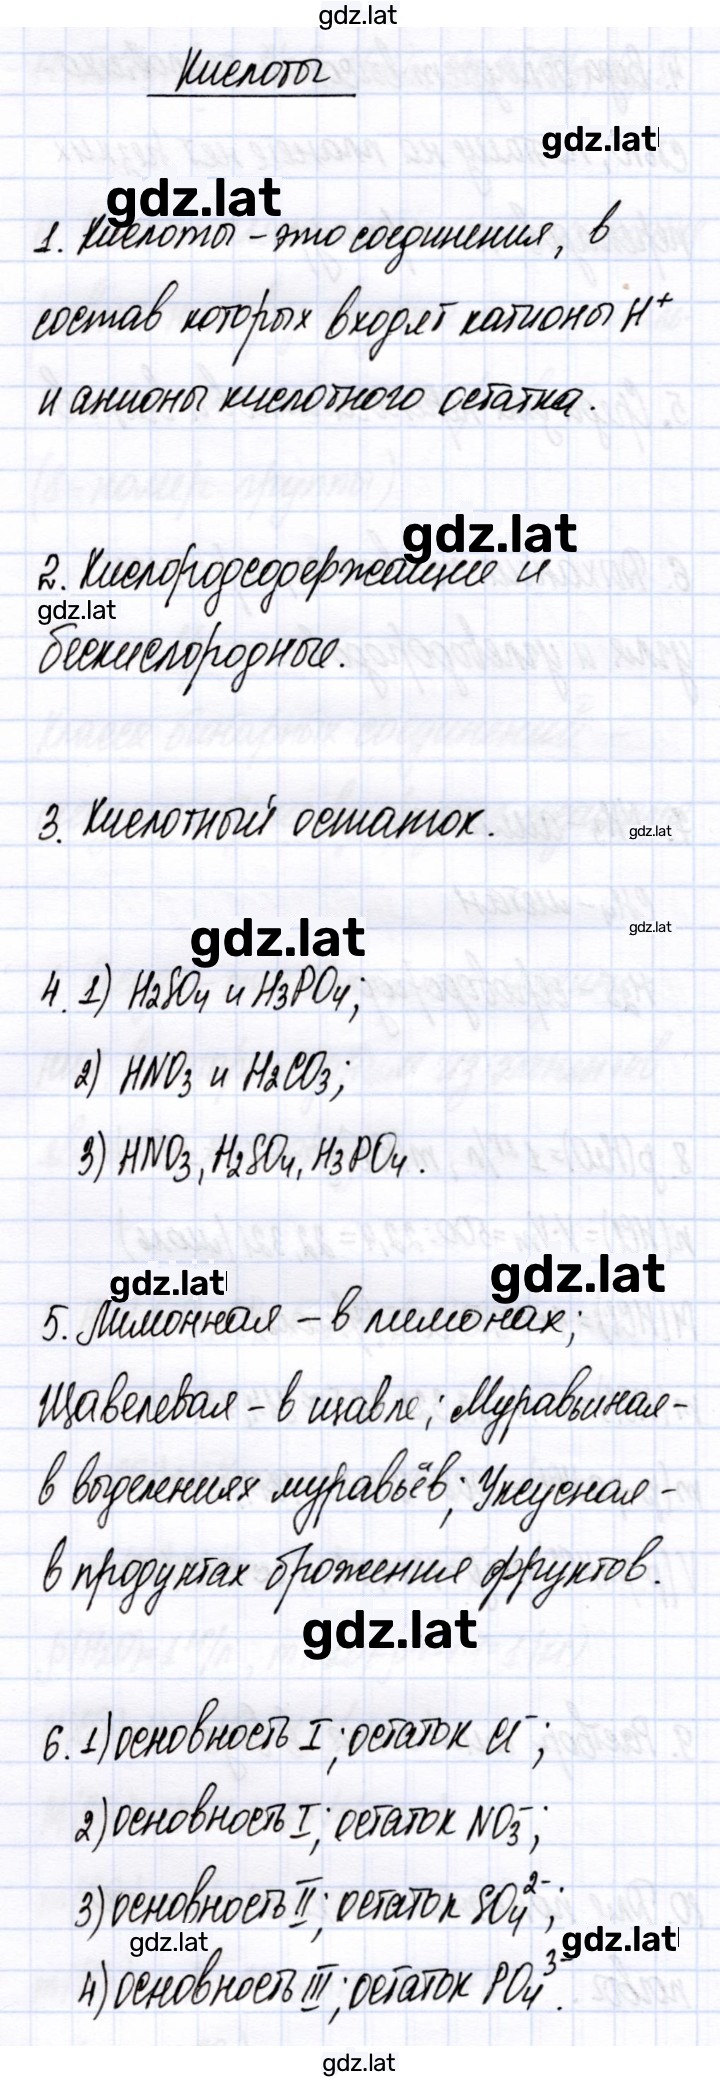 gdz.lat
Кислоты
gdz.lat
gdz.lat
1. Кислоты – это соединения, в
состав которых входят катионы H⁺
и анионы кислотного остатка.
gdz.lat
2. Кислородсодержащие и
gdz.lat
бескислородные.
3. Кислотный остаток.
gdz.lat
gdz.lat
gdz.lat
4. 1) H2SO4 и H3PO4;
2) HNO3 и H2CO3;
3) HNO3, H2SO4, H3PO4.
gdz.lat
gdz.lat
5. Лимонная – в лимонах;
Щавелевая – в щавле; Муравьиная –
в выделениях муравьёв; Уксусная –
в продуктах брожения фруктов.
gdz.lat
6. 1) основность I; остаток Cl⁻;
2) основность I; остаток NO3⁻;
3) основность II; остаток SO4²⁻;
gdz.lat
gdz.lat
4) основность III; остаток PO4³⁻.
gdz.lat